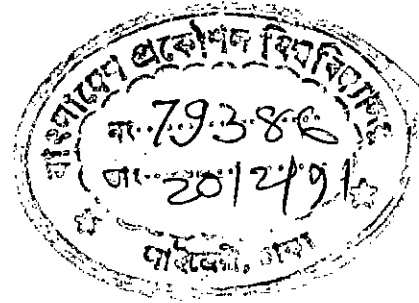 বাংলাদেশ প্রকৌশল বিশ্ববিদ্যালয়
নং..79386
তাং..20/2/91
লাইব্রেরী, ঢাকা